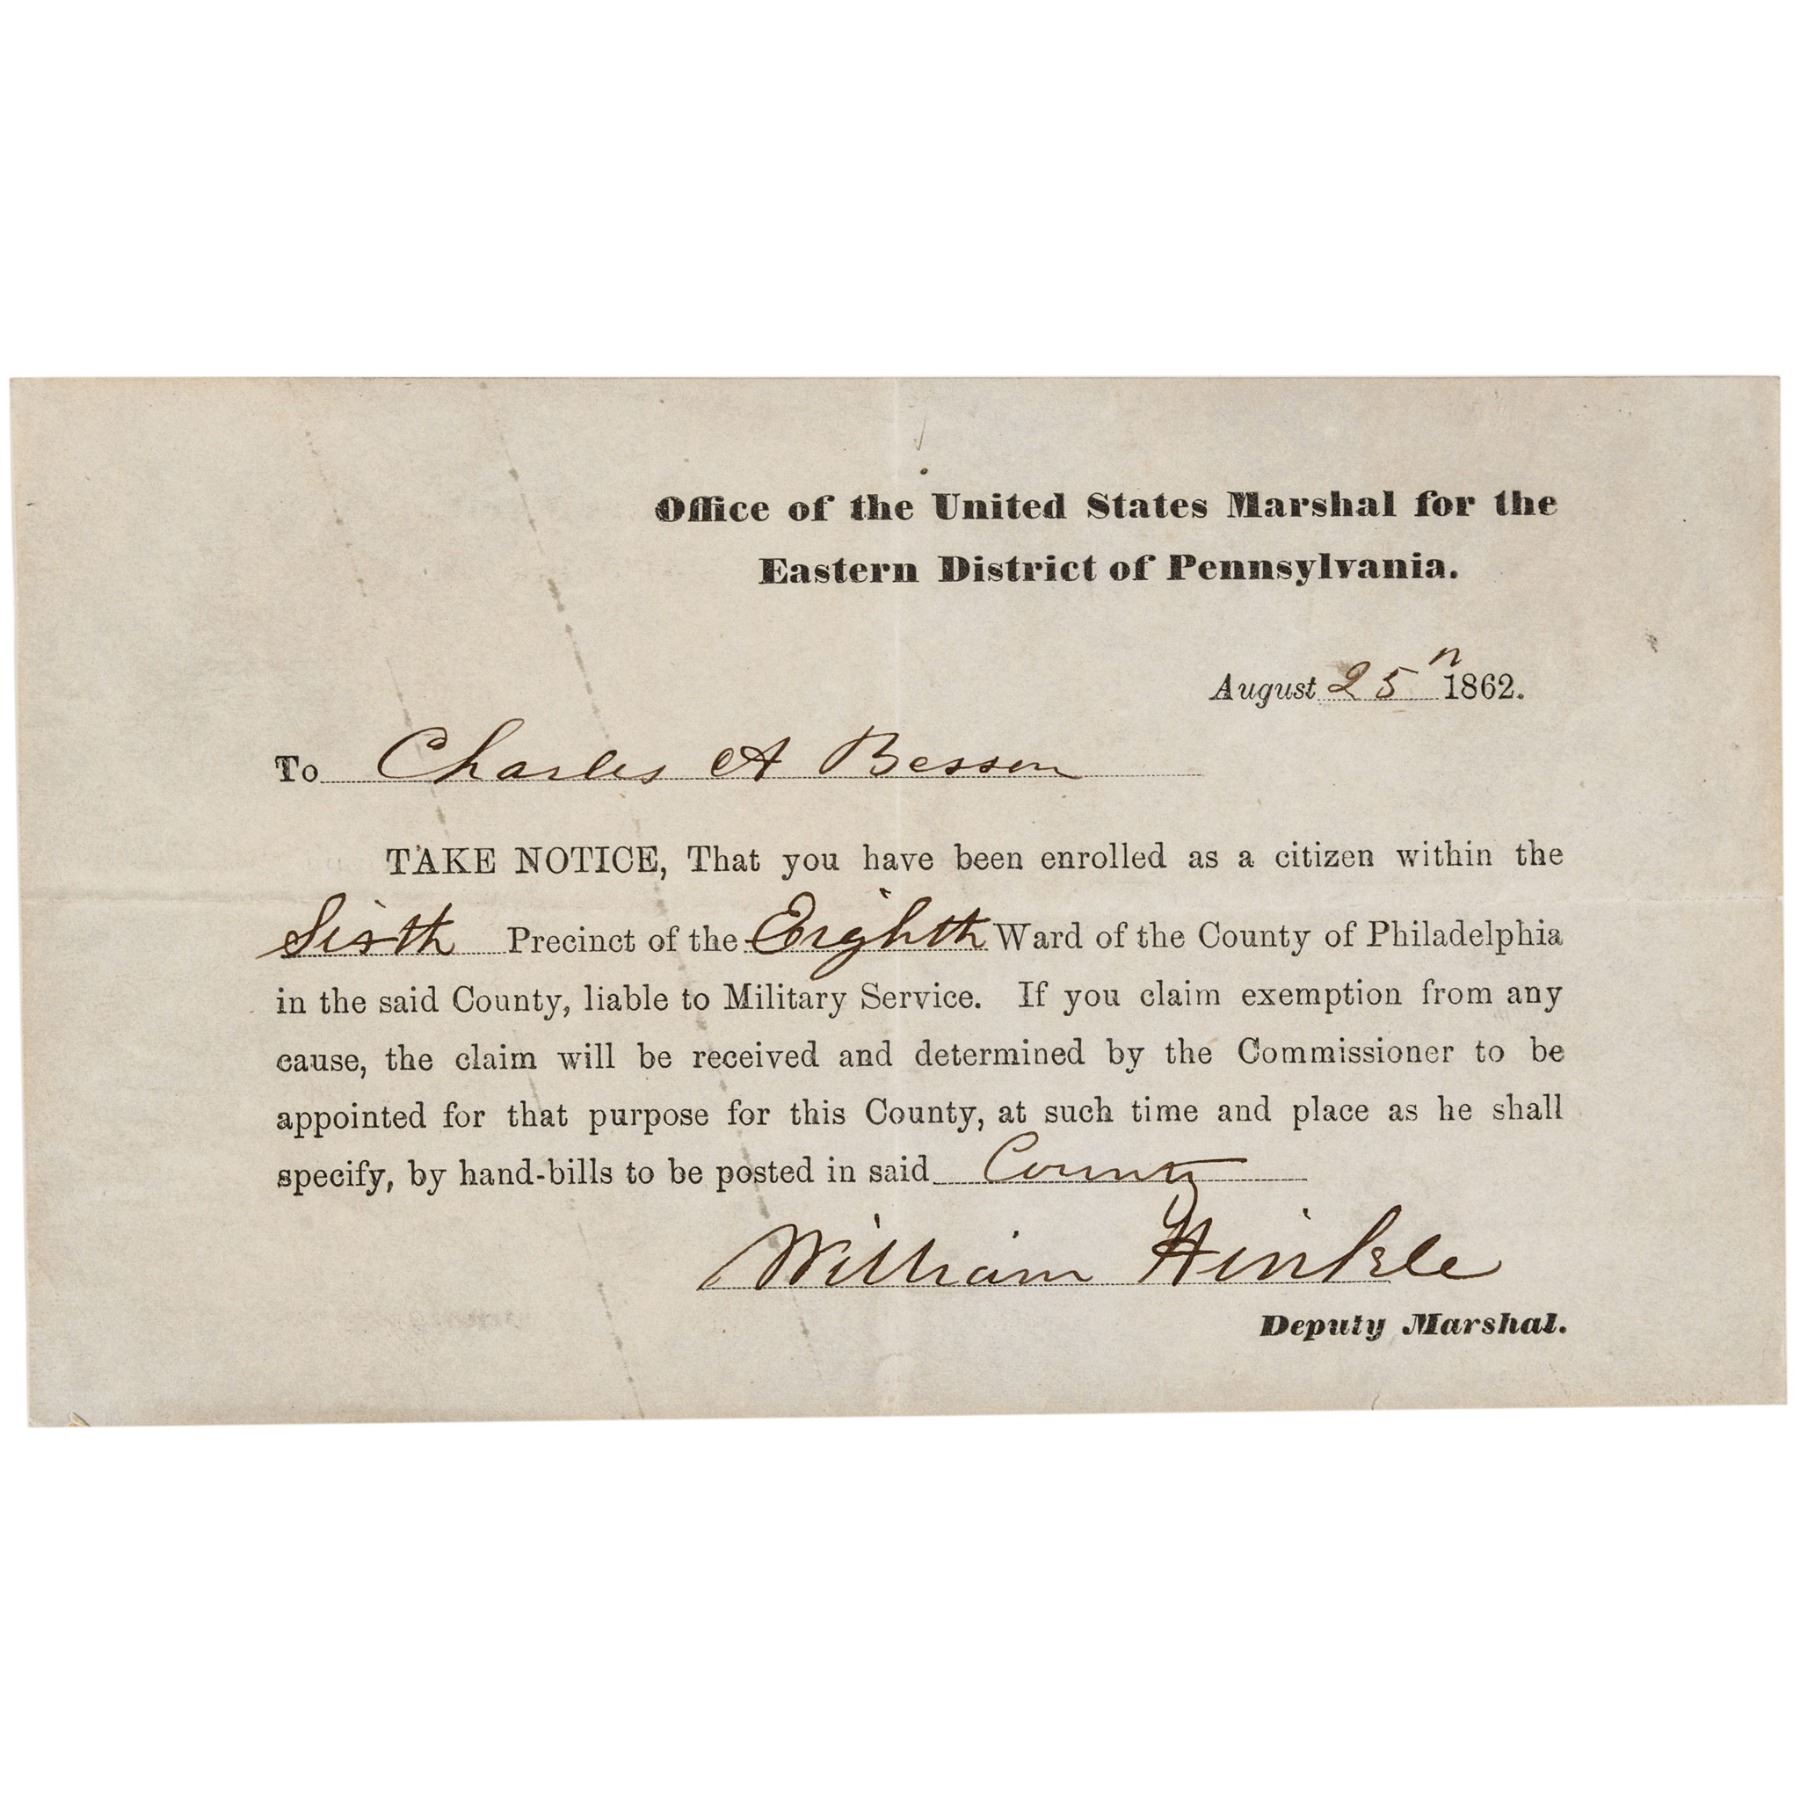 Office of the United States Marshal for the
Eastern District of Pennsylvania.
August 25 1862.
To Charles A Besson
TAKE NOTICE, That you have been enrolled as a citizen within the
Sixth Precinct of the Eighth Ward of the County of Philadelphia
in the said County, liable to Military Service. If you claim exemption from any
cause, the claim will be received and determined by the Commissioner to be
appointed for that purpose for this County, at such time and place as he shall
specify, by hand-bills to be posted in said County
William Hinkle
Deputy Marshal.